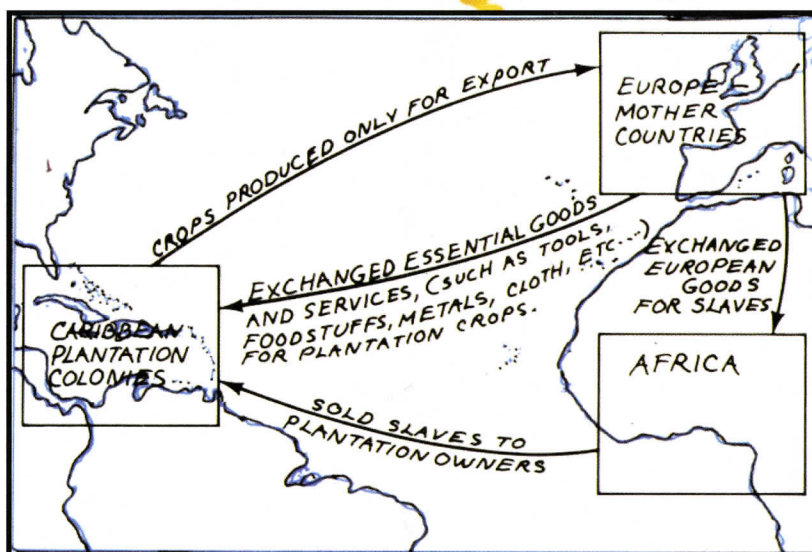 CROPS PRODUCED ONLY FOR EXPORT
EUROPE
MOTHER
COUNTRIES
EXCHANGED ESSENTIAL GOODS
AND SERVICES, (SUCH AS TOOLS,
FOODSTUFFS, METALS, CLOTH, ETC...)
FOR PLANTATION CROPS.
EXCHANGED
EUROPEAN
GOODS
FOR SLAVES
CARIBBEAN
PLANTATION
COLONIES
AFRICA
SOLD SLAVES TO
PLANTATION OWNERS